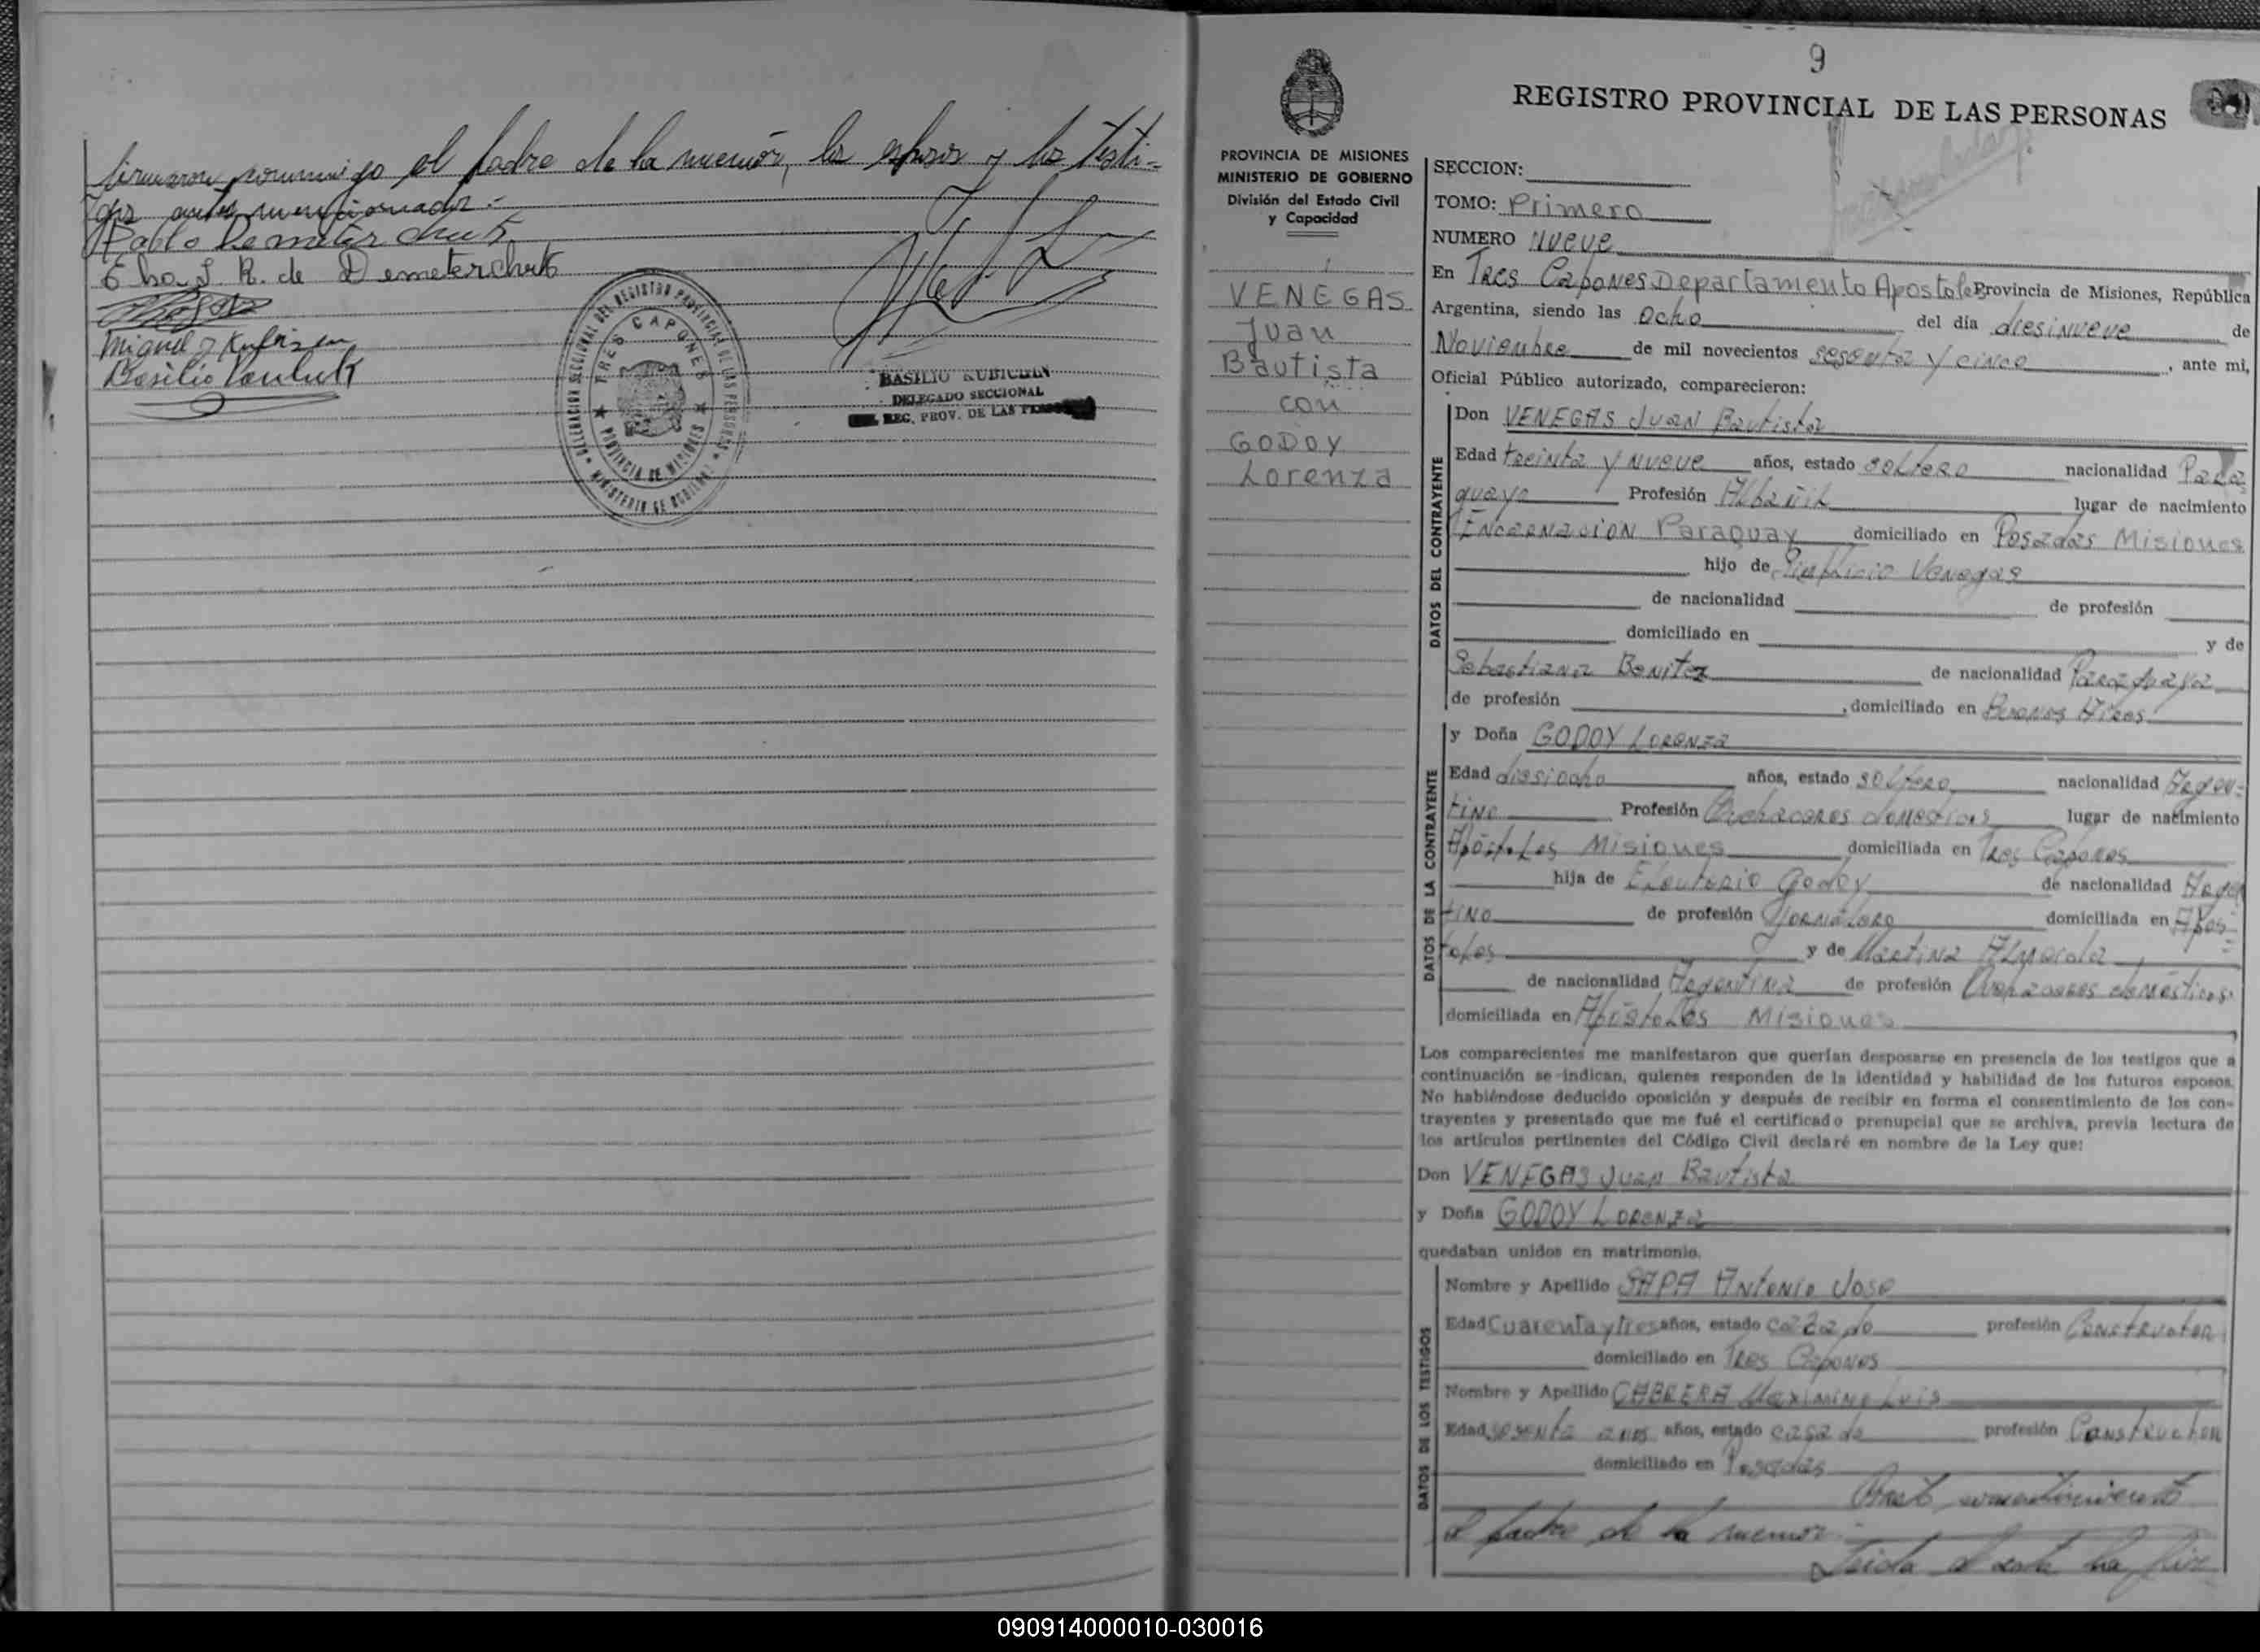 firmaron conmigo el padre de la menor, los esposos y los testi-
gos antes mencionados.-
Pablo Demeterchuk
E ha. J. R. de Demeterchuk
Miguel J
Basilio
DELEGACION SECCIONAL DEL REGISTRO PROVINCIAL DE LAS PERSONAS
TRES CAPONES
PROVINCIA DE MISIONES
MINISTERIO DE GOBIERNO
BASILIO
DELEGADO SECCIONAL
REG. PROV. DE LAS
9
REGISTRO PROVINCIAL DE LAS PERSONAS
PROVINCIA DE MISIONES
MINISTERIO DE GOBIERNO
División del Estado Civil
y Capacidad
VENEGAS
Juan
Bautista
con
GODOY
Lorenza
SECCION:
TOMO: Primero
NUMERO Nueve
En Tres Capones Departamento Apostoles Provincia de Misiones, República
Argentina, siendo las Ocho del día diesinueve de
Noviembre de mil novecientos sesenta y cinco, ante mi,
Oficial Público autorizado, comparecieron:
DATOS DEL CONTRAYENTE
Don VENEGAS Juan Bautista
Edad treinta y nueve años, estado soltero nacionalidad Para
guayo Profesión Albañil lugar de nacimiento
Encarnacion Paraguay domiciliado en Posadas Misiones
hijo de Simplicio Venegas
de nacionalidad de profesión
domiciliado en y de
Sebastiana Benitez de nacionalidad Paraguaya
de profesión , domiciliado en Buenos Aires
DATOS DE LA CONTRAYENTE
y Doña GODOY Lorenza
Edad diesiocho años, estado soltero nacionalidad Argen-
tino Profesión Quehaceres domesticos lugar de nacimiento
Apóstoles Misiones domiciliada en Tres Capones
hija de Eleuterio Godoy de nacionalidad Argen
tino de profesión Jornalero domiciliada en Apos-
toles y de Martina Almeida
de nacionalidad Argentina de profesión Quehaceres domésticos
domiciliada en Apóstoles Misiones
Los comparecientes me manifestaron que querían desposarse en presencia de los testigos que a
continuación se indican, quienes responden de la identidad y habilidad de los futuros esposos.
No habiéndose deducido oposición y después de recibir en forma el consentimiento de los con-
trayentes y presentado que me fué el certificado prenupcial que se archiva, previa lectura de
los artículos pertinentes del Código Civil declaré en nombre de la Ley que:
Don VENEGAS Juan Bautista
y Doña GODOY Lorenza
quedaban unidos en matrimonio.
DATOS DE LOS TESTIGOS
Nombre y Apellido SAPA Antonio Jose
Edad Cuarenta y tres años, estado casado profesión Constructor
domiciliado en Tres Capones
Nombre y Apellido CABRERA Maximino Luis
Edad sesenta años años, estado casado profesión Constructor
domiciliado en Posadas
Prest consentimiento
el padre de la menor.-
Leida el acta la fir
090914000010-030016